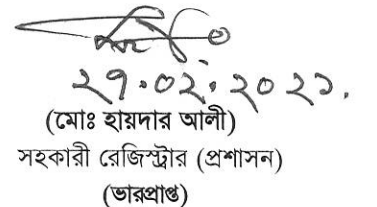 ২৭.০২.২০২১.
(মোঃ হায়দার আলী)
সহকারী রেজিস্ট্রার (প্রশাসন)
(ভারপ্রাপ্ত)